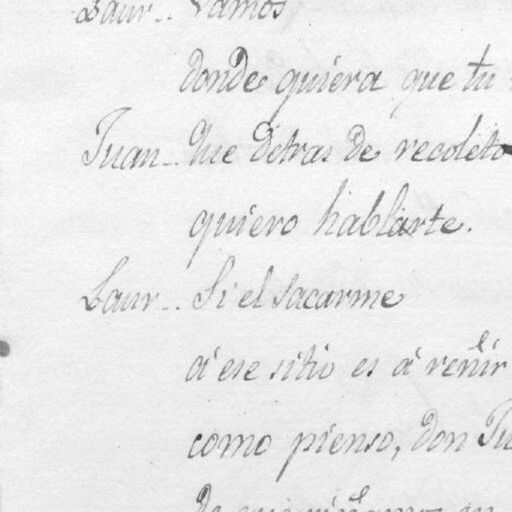 Laur.. Vamos
donde quiera que tu
Juan.. Que detras de recoleto
quiero hablarte.
Laur.. Si el sacarme
á ese sitio es á reñir
como pienso, don Ju
de que riñamos en